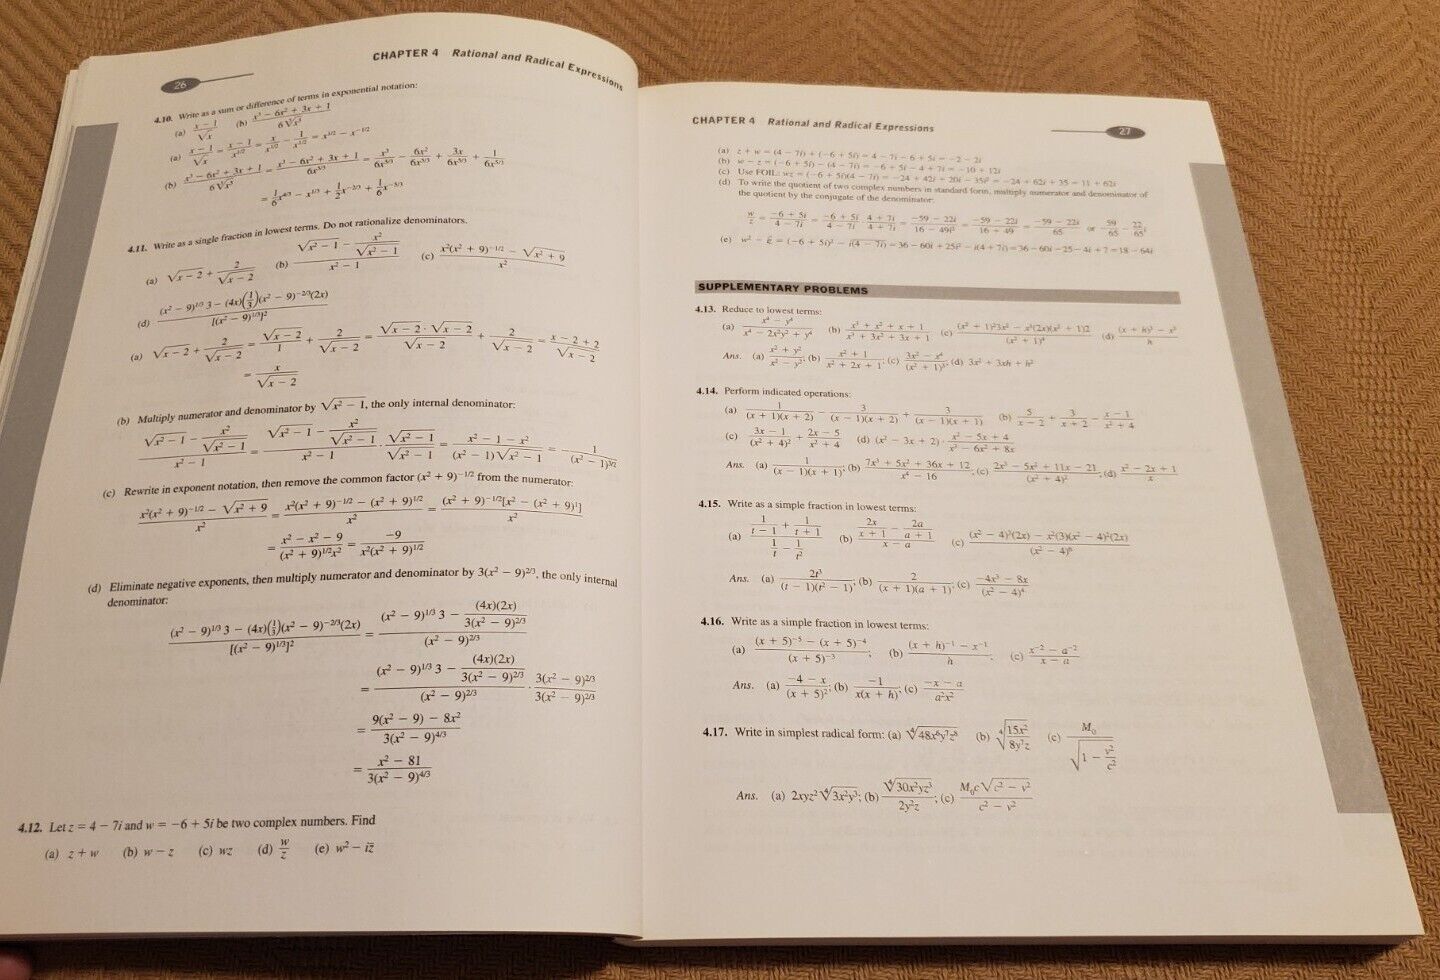 26
CHAPTER 4 Rational and Radical Expressions
4.10. Write as a sum or difference of terms in exponential notation:
(a) (x − 1)/√x (b) (x³ − 6x² + 3x + 1)/(6∛x⁵)
(a) (x − 1)/√x = (x − 1)/x^(1/2) = x/x^(1/2) − 1/x^(1/2) = x^(1/2) − x^(−1/2)
(b) (x³ − 6x² + 3x + 1)/(6∛x⁵) = (x³ − 6x² + 3x + 1)/(6x^(5/3)) = x³/(6x^(5/3)) − 6x²/(6x^(5/3)) + 3x/(6x^(5/3)) + 1/(6x^(5/3))
= (1/6)x^(4/3) − x^(1/3) + (1/2)x^(−2/3) + (1/6)x^(−5/3)
4.11. Write as a single fraction in lowest terms. Do not rationalize denominators.
(a) √(x − 2) + 2/√(x − 2) (b) (√(x² − 1) − x²/√(x² − 1))/(x² − 1) (c) (x²(x² + 9)^(−1/2) − √(x² + 9))/x²
(d) ((x² − 9)^(1/3) 3 − (4x)(1/3)(x² − 9)^(−2/3)(2x))/[(x² − 9)^(1/3)]²
(a) √(x − 2) + 2/√(x − 2) = √(x − 2)/1 + 2/√(x − 2) = (√(x − 2) · √(x − 2))/√(x − 2) + 2/√(x − 2) = (x − 2 + 2)/√(x − 2)
= x/√(x − 2)
(b) Multiply numerator and denominator by √(x² − 1), the only internal denominator:
(√(x² − 1) − x²/√(x² − 1))/(x² − 1) = (√(x² − 1) − x²/√(x² − 1))/(x² − 1) · √(x² − 1)/√(x² − 1) = (x² − 1 − x²)/((x² − 1)√(x² − 1)) = − 1/(x² − 1)^(3/2)
(c) Rewrite in exponent notation, then remove the common factor (x² + 9)^(−1/2) from the numerator:
(x²(x² + 9)^(−1/2) − √(x² + 9))/x² = (x²(x² + 9)^(−1/2) − (x² + 9)^(1/2))/x² = ((x² + 9)^(−1/2)[x² − (x² + 9)¹])/x²
= (x² − x² − 9)/((x² + 9)^(1/2)x²) = −9/(x²(x² + 9)^(1/2))
(d) Eliminate negative exponents, then multiply numerator and denominator by 3(x² − 9)^(2/3), the only internal
denominator:
((x² − 9)^(1/3) 3 − (4x)(1/3)(x² − 9)^(−2/3)(2x))/[(x² − 9)^(1/3)]² = ((x² − 9)^(1/3) 3 − (4x)(2x)/(3(x² − 9)^(2/3)))/(x² − 9)^(2/3)
= ((x² − 9)^(1/3) 3 − (4x)(2x)/(3(x² − 9)^(2/3)))/(x² − 9)^(2/3) · 3(x² − 9)^(2/3)/3(x² − 9)^(2/3)
= (9(x² − 9) − 8x²)/(3(x² − 9)^(4/3))
= (x² − 81)/(3(x² − 9)^(4/3))
4.12. Let z = 4 − 7i and w = −6 + 5i be two complex numbers. Find
(a) z + w (b) w − z (c) wz (d) w/z (e) w² − iz̄
CHAPTER 4 Rational and Radical Expressions
27
(a) z + w = (4 − 7i) + (−6 + 5i) = 4 − 7i − 6 + 5i = −2 − 2i
(b) w − z = (−6 + 5i) − (4 − 7i) = −6 + 5i − 4 + 7i = −10 + 12i
(c) Use FOIL: wz = (−6 + 5i)(4 − 7i) = −24 + 42i + 20i − 35i² = −24 + 62i + 35 = 11 + 62i
(d) To write the quotient of two complex numbers in standard form, multiply numerator and denominator of
the quotient by the conjugate of the denominator:
w/z = (−6 + 5i)/(4 − 7i) = (−6 + 5i)/(4 − 7i) · (4 + 7i)/(4 + 7i) = (−59 − 22i)/(16 − 49i²) = (−59 − 22i)/(16 + 49) = (−59 − 22i)/65 or −59/65 − (22/65)i
(e) w² − iz̄ = (−6 + 5i)² − i(4 − 7i) = 36 − 60i + 25i² − i(4 + 7i) = 36 − 60i − 25 − 4i + 7 = 18 − 64i
SUPPLEMENTARY PROBLEMS
4.13. Reduce to lowest terms:
(a) (x⁴ − y⁴)/(x⁴ − 2x²y² + y⁴) (b) (x³ + x² + x + 1)/(x³ + 3x² + 3x + 1) (c) ((x² + 1)²3x² − x³(2x)(x² + 1)2)/(x² + 1)⁴ (d) ((x + h)³ − x³)/h
Ans. (a) (x² + y²)/(x² − y²); (b) (x² + 1)/(x² + 2x + 1); (c) (3x² − x⁴)/(x² + 1)³; (d) 3x² + 3xh + h²
4.14. Perform indicated operations:
(a) 1/((x + 1)(x + 2)) − 3/((x − 1)(x + 2)) + 3/((x − 1)(x + 1)) (b) 5/(x − 2) + 3/(x + 2) − (x − 1)/(x² + 4)
(c) (3x − 1)/(x² + 4)² + (2x − 5)/(x² + 4) (d) (x² − 3x + 2) · (x² − 5x + 4)/(x³ − 6x² + 8x)
Ans. (a) 1/((x − 1)(x + 1)); (b) (7x³ + 5x² + 36x + 12)/(x⁴ − 16); (c) (2x³ − 5x² + 11x − 21)/(x² + 4)²; (d) (x² − 2x + 1)/x
4.15. Write as a simple fraction in lowest terms:
(a) (1/(t − 1) + 1/(t + 1))/(1/t − 1/t²) (b) (2x/(x + 1) − 2a/(a + 1))/(x − a) (c) ((x² − 4)³(2x) − x²(3)(x² − 4)²(2x))/(x² − 4)⁶
Ans. (a) 2t³/((t − 1)(t² − 1)); (b) 2/((x + 1)(a + 1)); (c) (−4x³ − 8x)/(x² − 4)⁴
4.16. Write as a simple fraction in lowest terms:
(a) ((x + 5)⁻⁵ − (x + 5)⁻⁴)/(x + 5)⁻³; (b) ((x + h)⁻¹ − x⁻¹)/h; (c) (x⁻² − a⁻²)/(x − a)
Ans. (a) (−4 − x)/(x + 5)²; (b) −1/(x(x + h)); (c) (−x − a)/(a²x²)
4.17. Write in simplest radical form: (a) ⁴√(48x⁶y⁷z⁸) (b) ⁴√(15x²/(8y⁷z)) (c) M₀/√(1 − v²/c²)
Ans. (a) 2xyz² ⁴√(3x²y³); (b) ⁴√(30x²yz³)/(2y²z); (c) M₀c√(c² − v²)/(c² − v²)